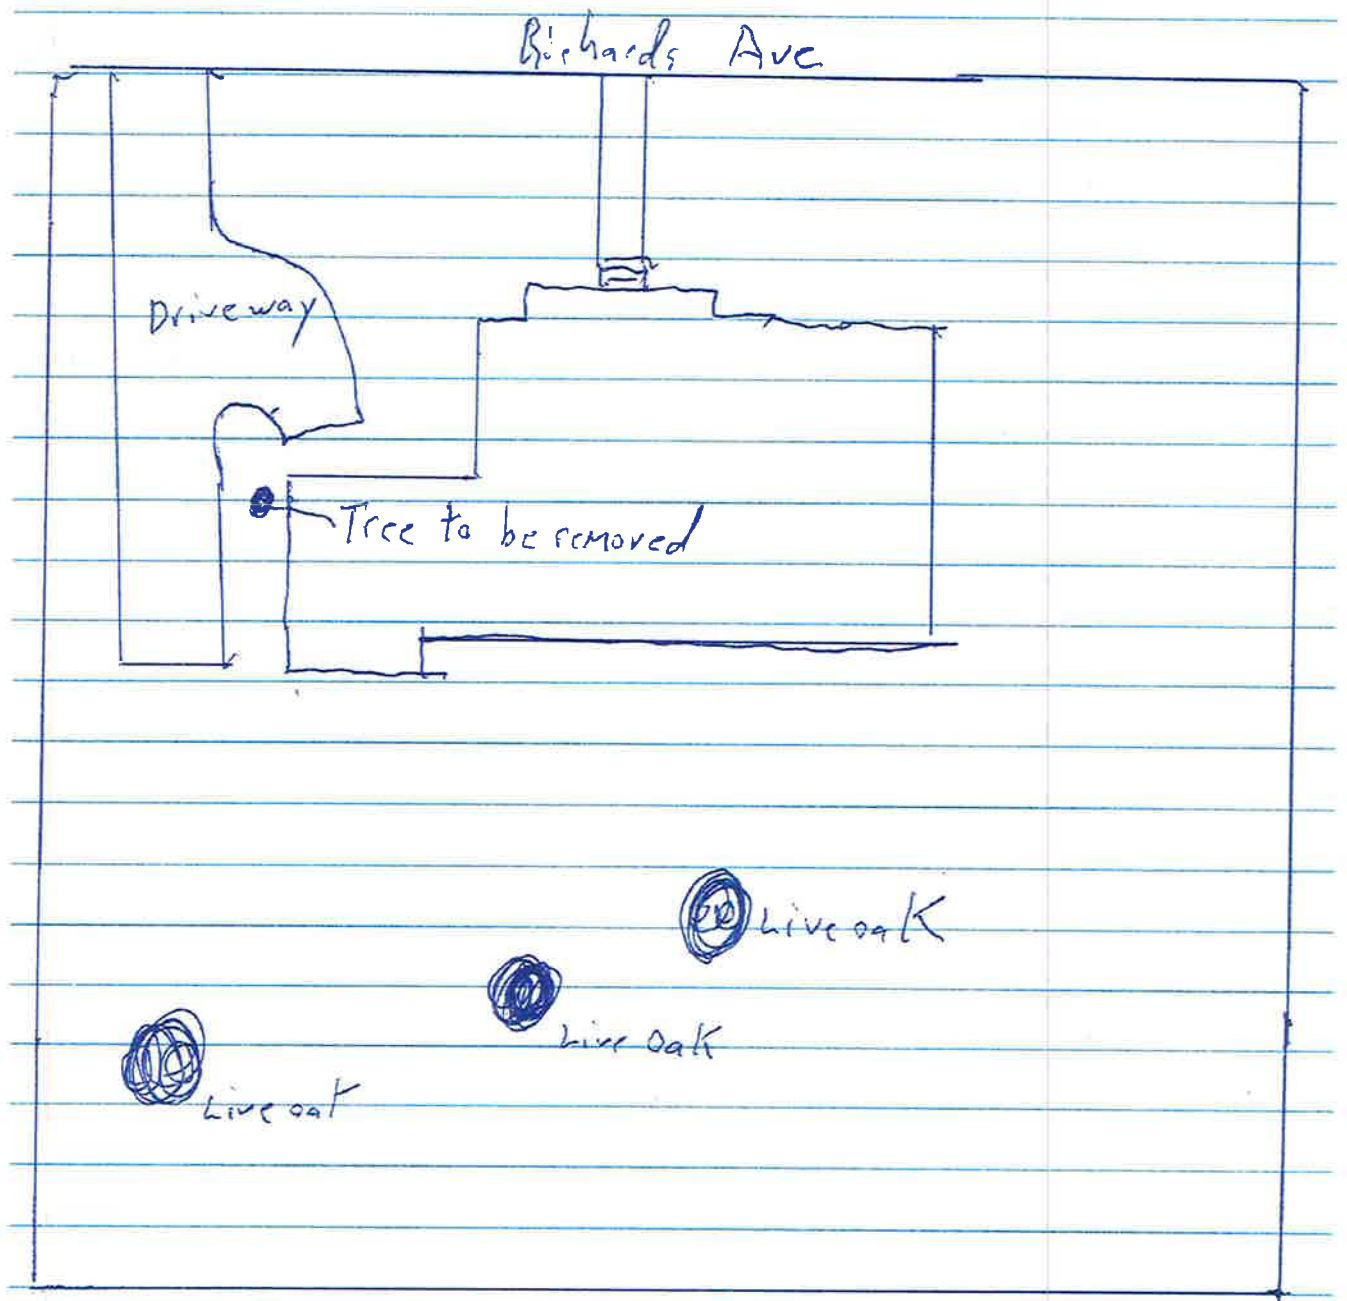 Richards Ave
Driveway
Tree to be removed
Live oak
Live Oak
Live oak